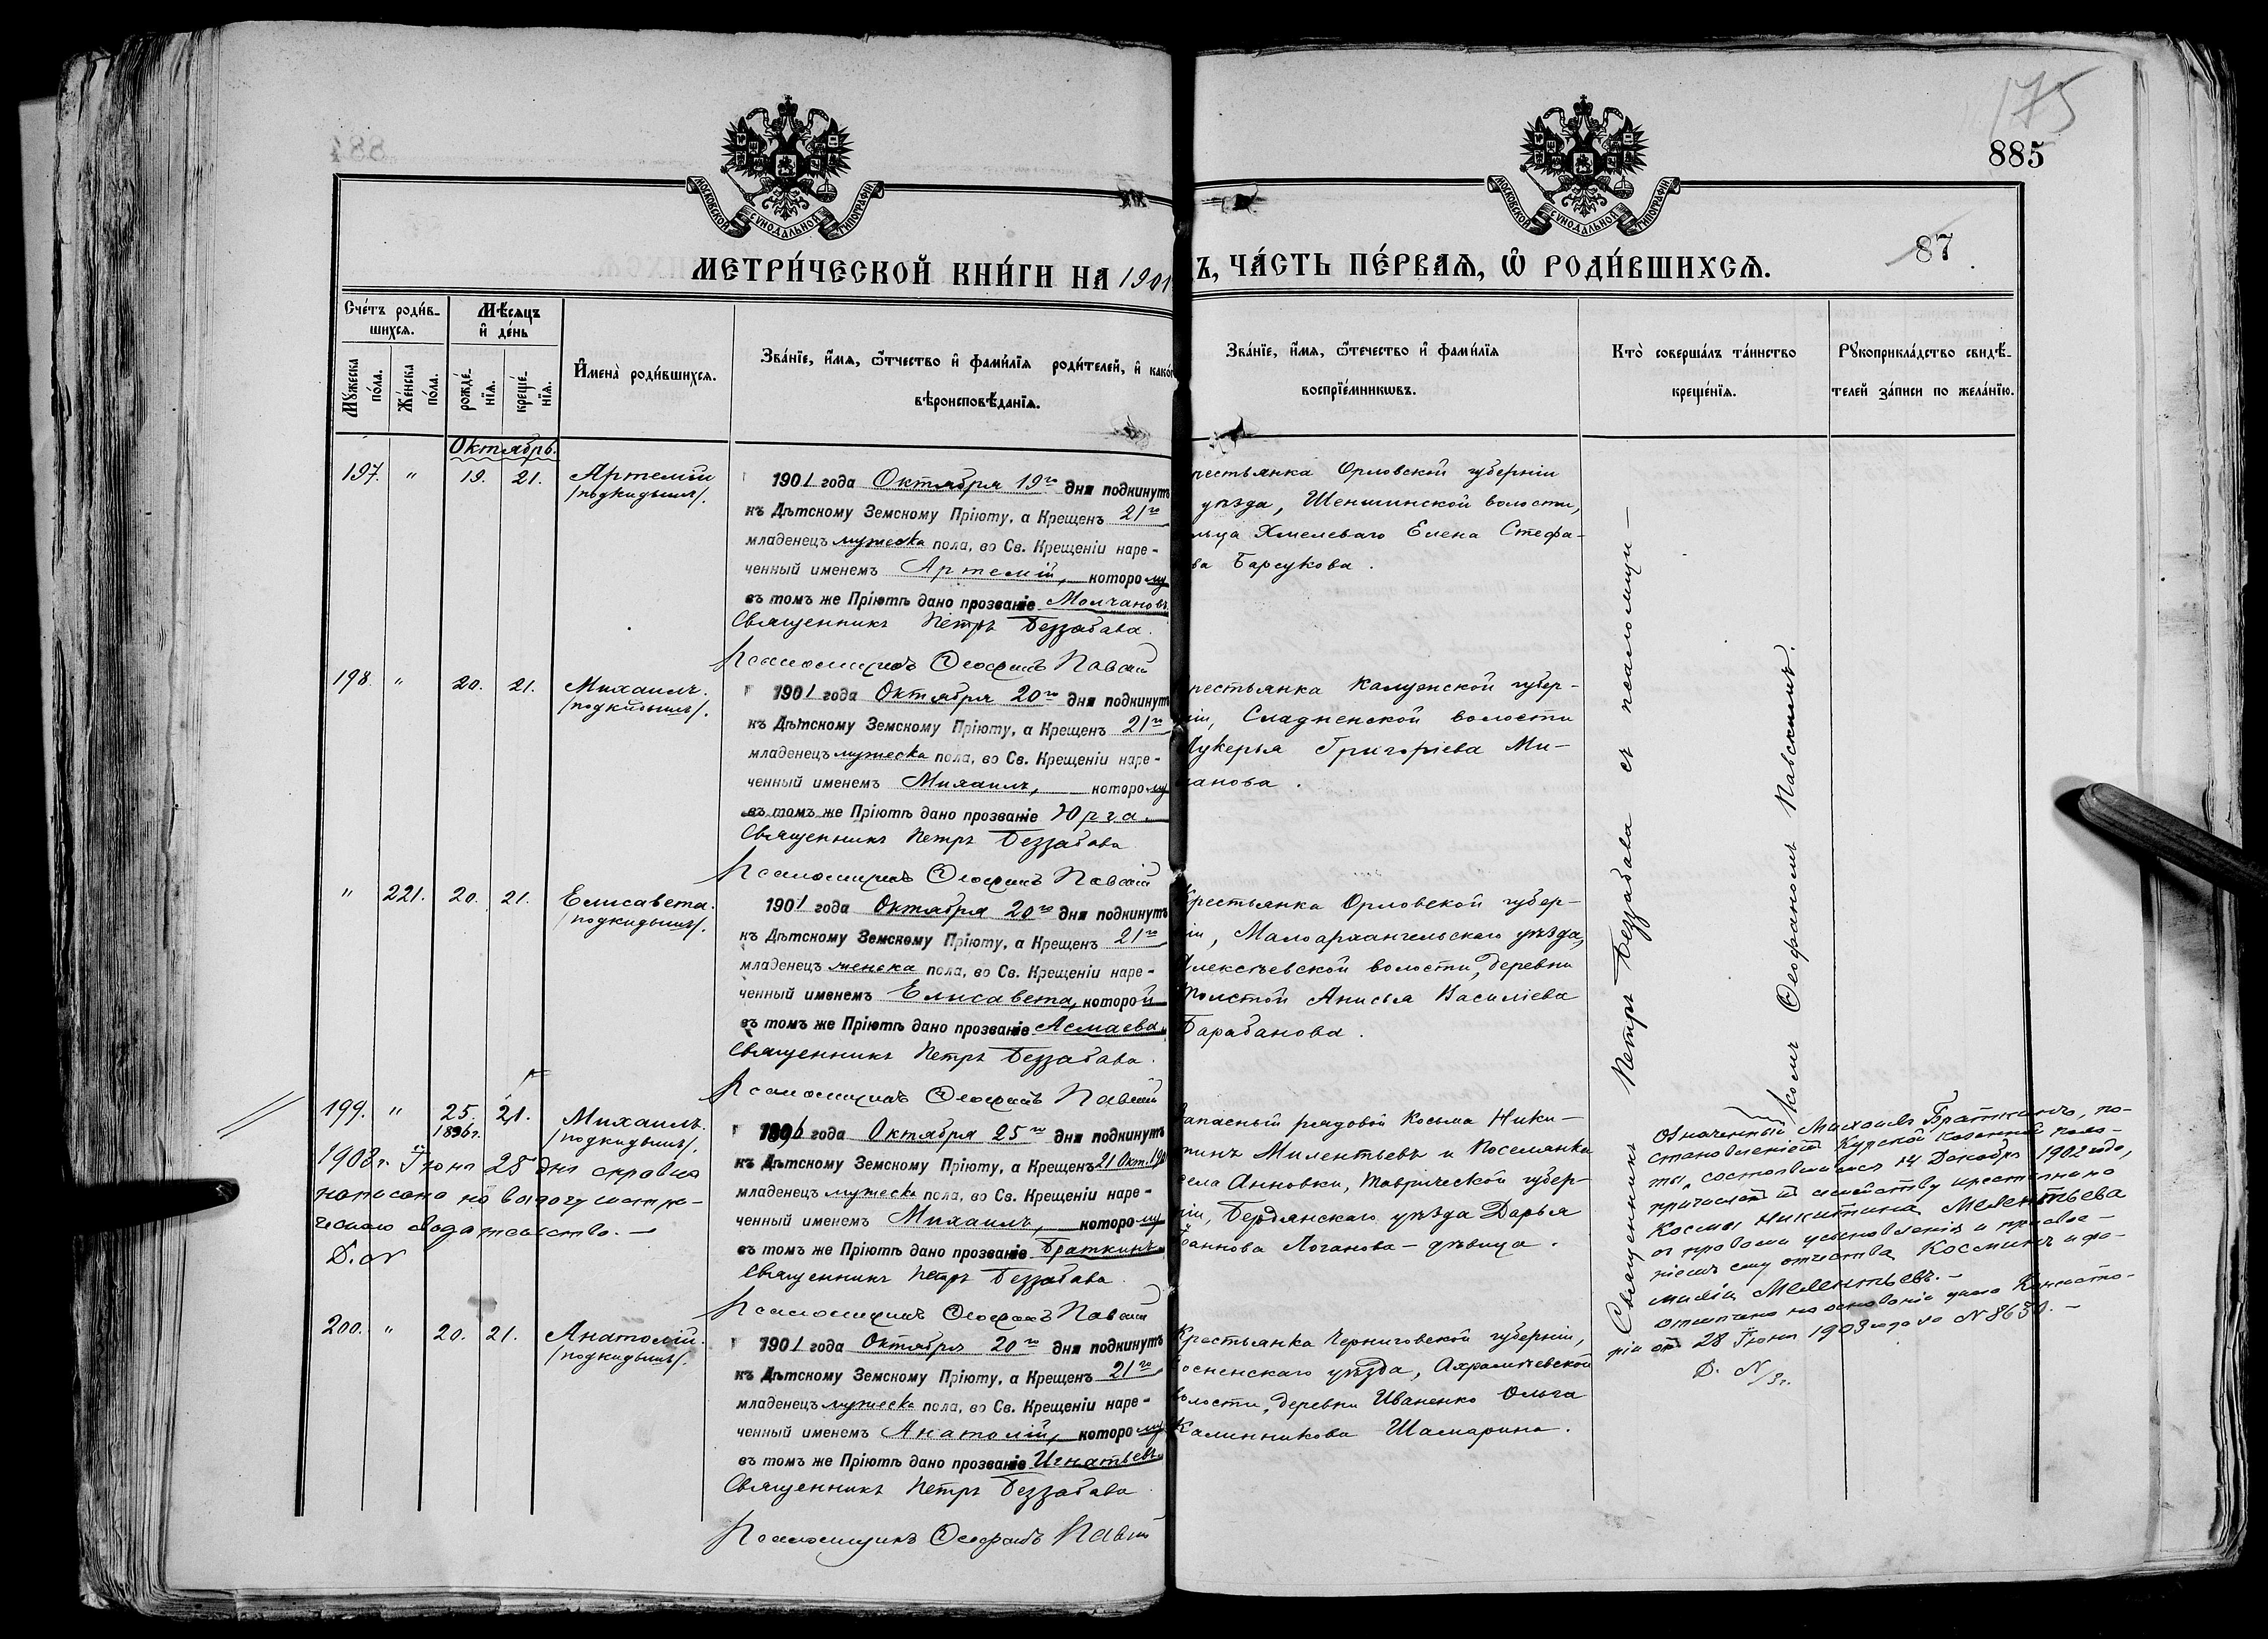 175
885
884
87
МОСКОВСКОЙ СѴНОДАЛЬНОЙ ТИПОГРАФІИ
МОСКОВСКОЙ СѴНОДАЛЬНОЙ ТИПОГРАФІИ
МЕТРИ́ЧЕСКОЙ КНИ́ГИ НА 1901
Ъ, ЧА́СТЬ ПЕ́РВАѦ, Ѿ РОДИ́ВШИХСѦ.
Сче́тъ роди́в-
шихсѧ.
Мꙋжеска
по́ла.
Же́нска
по́ла.
Мѣ́сѧцъ
и҆ де́нь
рожде́-
нїѧ.
креще́-
нїѧ.
И҆мена̀ роди́вшихсѧ.
Зва́нїе, и҆́мѧ, ѻ҆́тчество и҆ фами́лїѧ роди́телей, и҆ како́г
вѣроисповѣ́данїѧ.
Зва́нїе, и҆́мѧ, ѻ҆те́чество и҆ фами́лїѧ
воспрїе́мникѡвъ.
Кто̀ соверша́лъ та́инство
креще́нїѧ.
Рꙋкоприкла́дство свидѣ́-
телей за́писи по жела́нїю.
Октябрь.
197. " 19. 21. Артемій
/подкидышъ/.
1901 года Октября 19го дня подкинутъ
къ Дѣтскому Земскому Пріюту, а Крещенъ 21го
младенецъ мужеска пола, во Св. Крещеніи наре-
ченный именемъ Артемій, которому
въ томъ же Пріютѣ дано прозваніе Молчановъ
Священникъ Петръ Беззабава.
Псаломщикъ Ѳеофанъ Павскій
рестьянка Орловской губерніи
уѣзда, Шеншинской волости,
льца Хмелеваго Елена Стефа-
ва Барсукова.
198. " 20. 21. Михаилъ.
/подкидышъ/.
1901 года Октября 20го дня подкинутъ
къ Дѣтскому Земскому Пріюту, а Крещенъ 21го
младенецъ мужеска пола, во Св. Крещеніи наре-
ченный именемъ Михаилъ, которому
въ томъ же Пріютѣ дано прозваніе Юрга.
Священникъ Петръ Беззабава
Псаломщикъ Ѳеофанъ Павскій
рестьянка Калужской губер-
ніи, Сладненской волости
Лукерья Григоріева Ми-
ланова.
" 221. 20. 21. Елисавета.
/подкидышъ/.
1901 года Октября 20го дня подкинутъ
къ Дѣтскому Земскому Пріюту, а Крещенъ 21го
младенецъ женска пола, во Св. Крещеніи наре-
ченный именемъ Елисавета, которой
въ томъ же Пріютѣ дано прозваніе Асмаева.
Священникъ Петръ Беззабава.
Псаломщикъ Ѳеофанъ Павскій
Крестьянка Орловской губер-
ніи, Малоархангельскаго уѣзда,
Алексѣевской волости, деревни
Толстой Анисья Василіева
Барабанова.
199. " 25. 21. Михаилъ.
1896г. /подкидышъ/.
1896 года Октября 25го дня подкинутъ
къ Дѣтскому Земскому Пріюту, а Крещенъ 21 Окт. 190
младенецъ мужеска пола, во Св. Крещеніи наре-
ченный именемъ Михаилъ, которому
въ томъ же Пріютѣ дано прозваніе Браткинъ.
Священникъ Петръ Беззабава.
Псаломщикъ Ѳеофанъ Павскій
1903г. Іюня 28 дня справка
написана на выдачу метри-
ческаго свидѣтельства. —
Запасный рядовой Косьма Ники-
тинъ Милентьевъ и Поселянка
села Анновки, Таврической губер-
ніи, Бердянскаго уѣзда Дарья
Іоаннова Логанова – дѣвица.
Означенный Михаилъ Браткинъ, по-
становленіемъ Курской Казенной пала-
ты, состоявшимся 14 Декабря 1902 года,
причисленъ къ семейству крестьянина
Космы Никитина Мелентьева
съ правами усыновленія и присвое-
ніемъ ему отчества Космичъ и фа-
миліи Мелентьевъ. —
Отмѣчено на основаніи указа Консисто-
ріи отъ 28 Іюня 1903 года за № 8630. —
200. " 20. 21. Анатолій.
/подкидышъ/.
1901 года Октября 20го дня подкинутъ
къ Дѣтскому Земскому Пріюту, а Крещенъ 21го
младенецъ мужеска пола, во Св. Крещеніи наре-
ченный именемъ Анатолій, которому
въ томъ же Пріютѣ дано прозваніе Игнатьевъ
Священникъ Петръ Беззабава
Псаломщикъ Ѳеофанъ Павскій
Крестьянка Черниговской губерніи,
Сосненскаго уѣзда, Ахрамѣевской
волости, деревни Иваненко Ольга
Калинникова Шамарина.
Священникъ Петръ Беззабава съ псаломщи-
комъ Ѳеофаномъ Павскимъ.